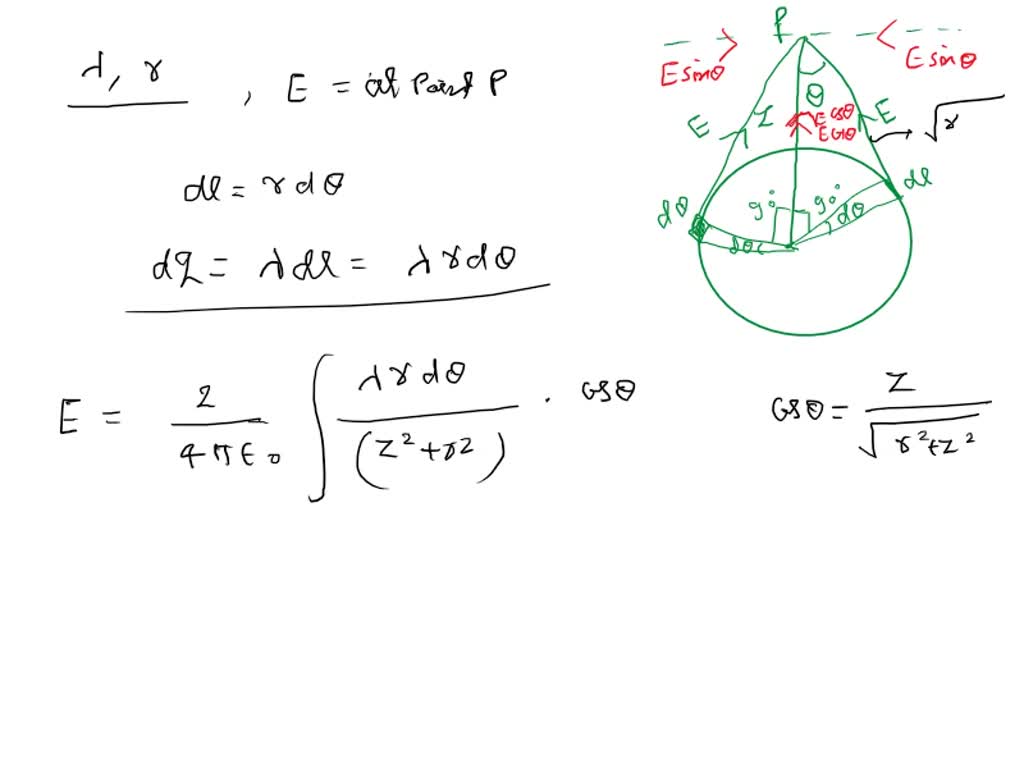 λ, r , E = at Point P
dl = r dθ
dq = λ dl = λ r dθ
E = 2 / 4πε₀ ∫ λ r dθ / (z² + r2) . cosθ
cosθ = z / √r² + z²
P
E sinθ
E sinθ
θ
E
z
E cosθ
E cosθ
E
√r
dθ
90°
90°
dθ
dl